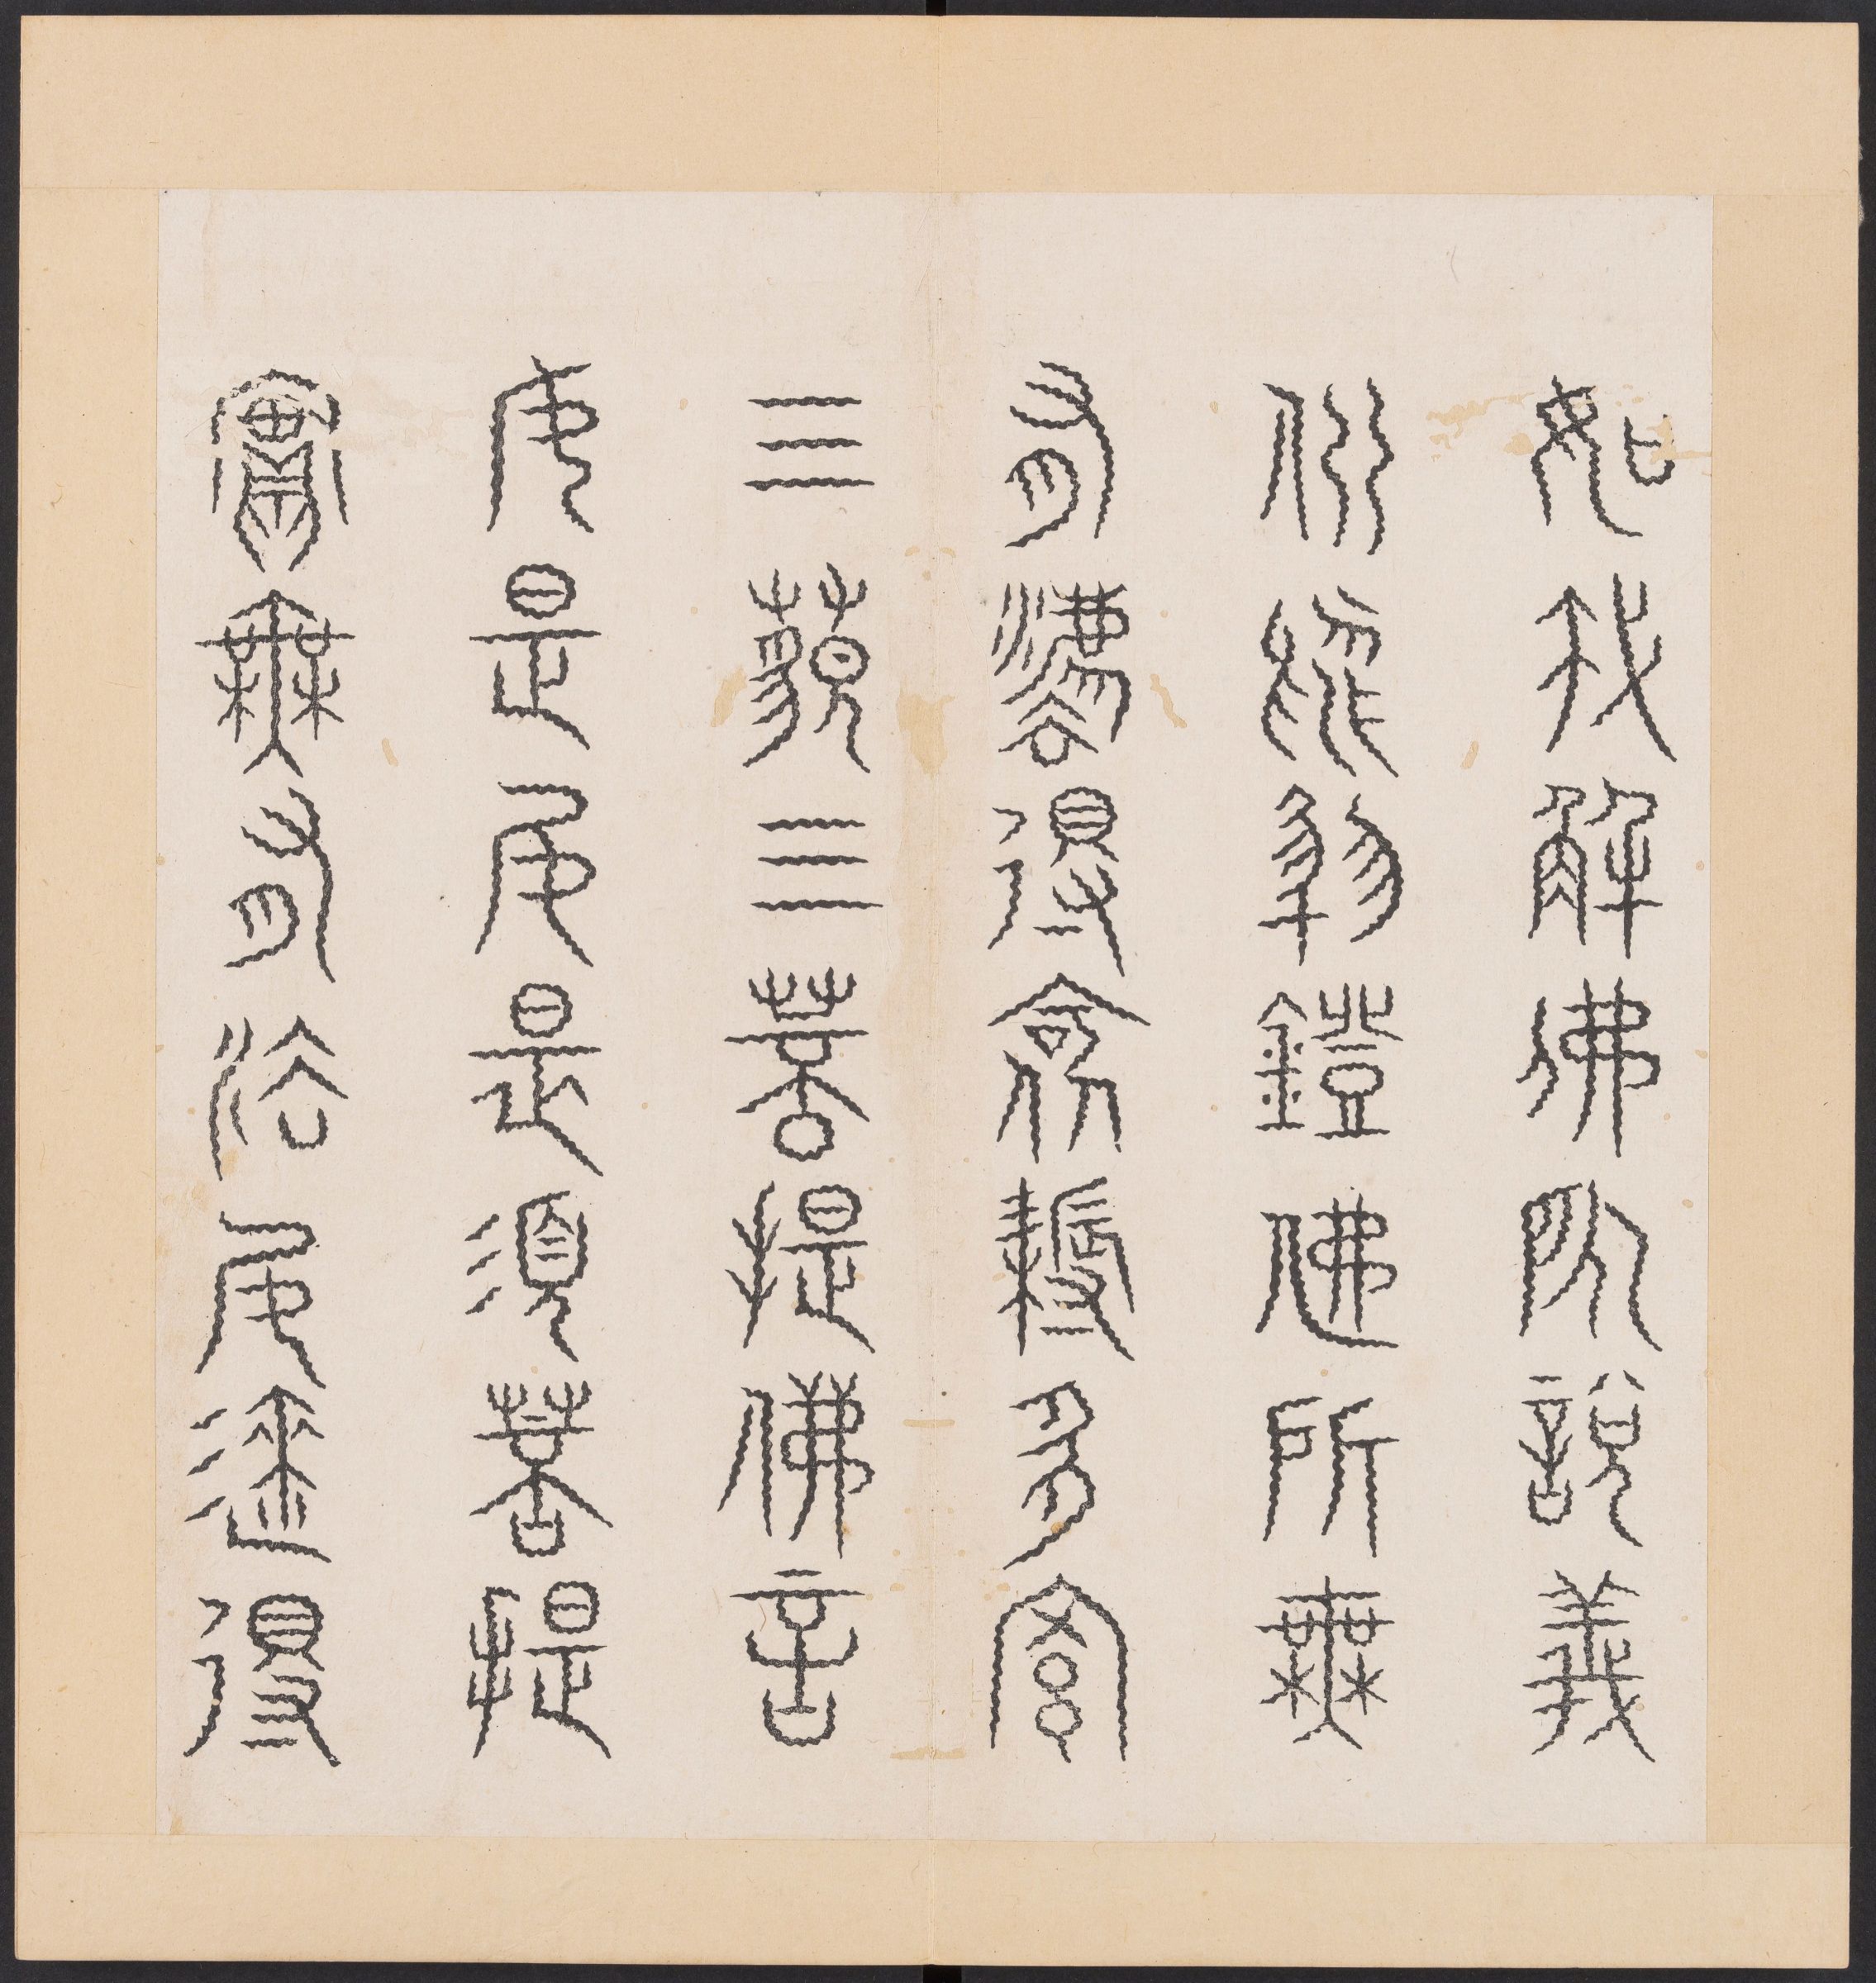 如我解佛所說義
佛於然燈佛所無
有法得阿耨多羅
三藐三菩提佛言
如是如是須菩提
實無有法如來得